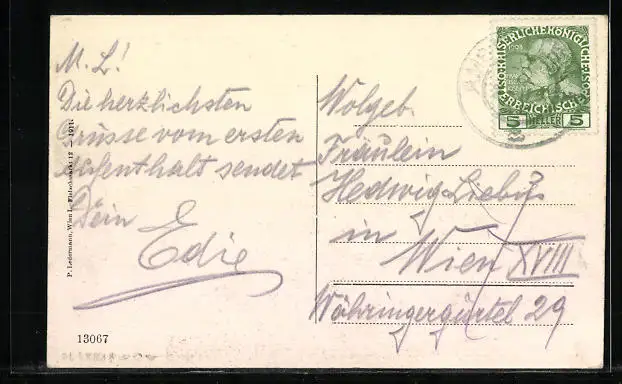 M. L!
Die herzlichsten
Grüsse vom ersten
Aufenthalt sendet
Dein
Edie
P. Ledermann, Wien I., Fleischmarkt 12 — 1911.
13067
Wolgeb.
Fräulein
Hedwig
in
Wien XVIII
Währingergürtel 29
KAISERLICHE KÖNIGLICHE ÖSTERREICHISCHE
1908
5 HELLER 5